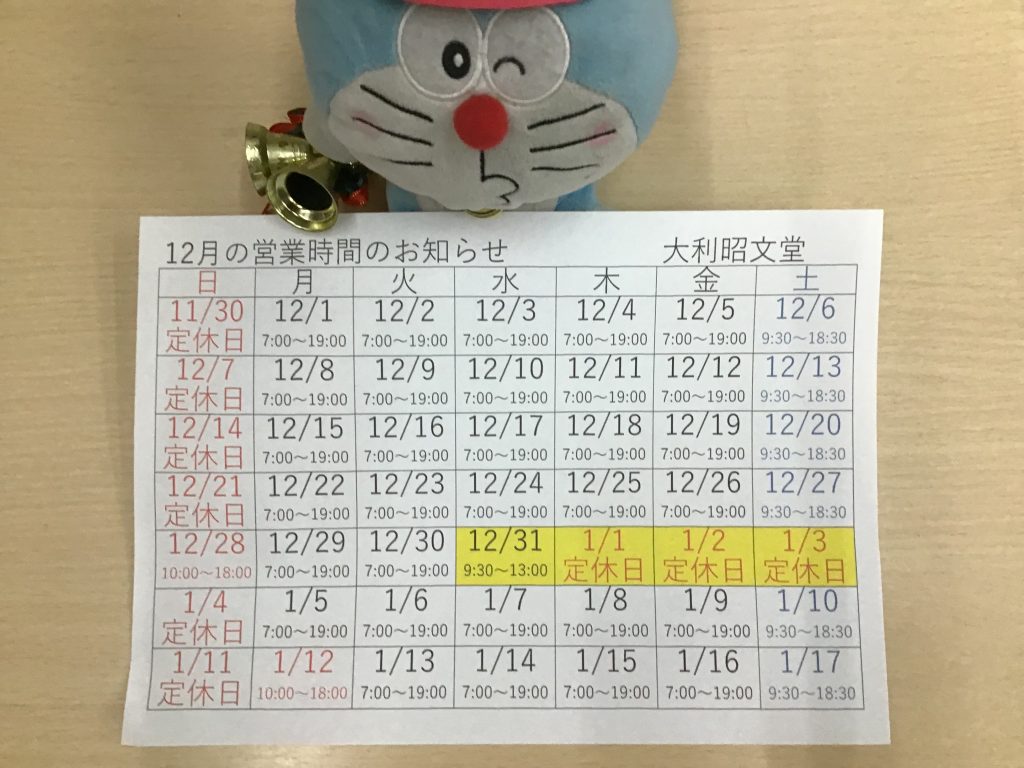 12月の営業時間のお知らせ 大利昭文堂
日 月 火 水 木 金 土
11/30 12/1 12/2 12/3 12/4 12/5 12/6
定休日 7:00～19:00 7:00～19:00 7:00～19:00 7:00～19:00 7:00～19:00 9:30～18:30
12/7 12/8 12/9 12/10 12/11 12/12 12/13
定休日 7:00～19:00 7:00～19:00 7:00～19:00 7:00～19:00 7:00～19:00 9:30～18:30
12/14 12/15 12/16 12/17 12/18 12/19 12/20
定休日 7:00～19:00 7:00～19:00 7:00～19:00 7:00～19:00 7:00～19:00 9:30～18:30
12/21 12/22 12/23 12/24 12/25 12/26 12/27
定休日 7:00～19:00 7:00～19:00 7:00～19:00 7:00～19:00 7:00～19:00 9:30～18:30
12/28 12/29 12/30 12/31 1/1 1/2 1/3
10:00～18:00 7:00～19:00 7:00～19:00 9:30～13:00 定休日 定休日 定休日
1/4 1/5 1/6 1/7 1/8 1/9 1/10
定休日 7:00～19:00 7:00～19:00 7:00～19:00 7:00～19:00 7:00～19:00 9:30～18:30
1/11 1/12 1/13 1/14 1/15 1/16 1/17
定休日 10:00～18:00 7:00～19:00 7:00～19:00 7:00～19:00 7:00～19:00 9:30～18:30